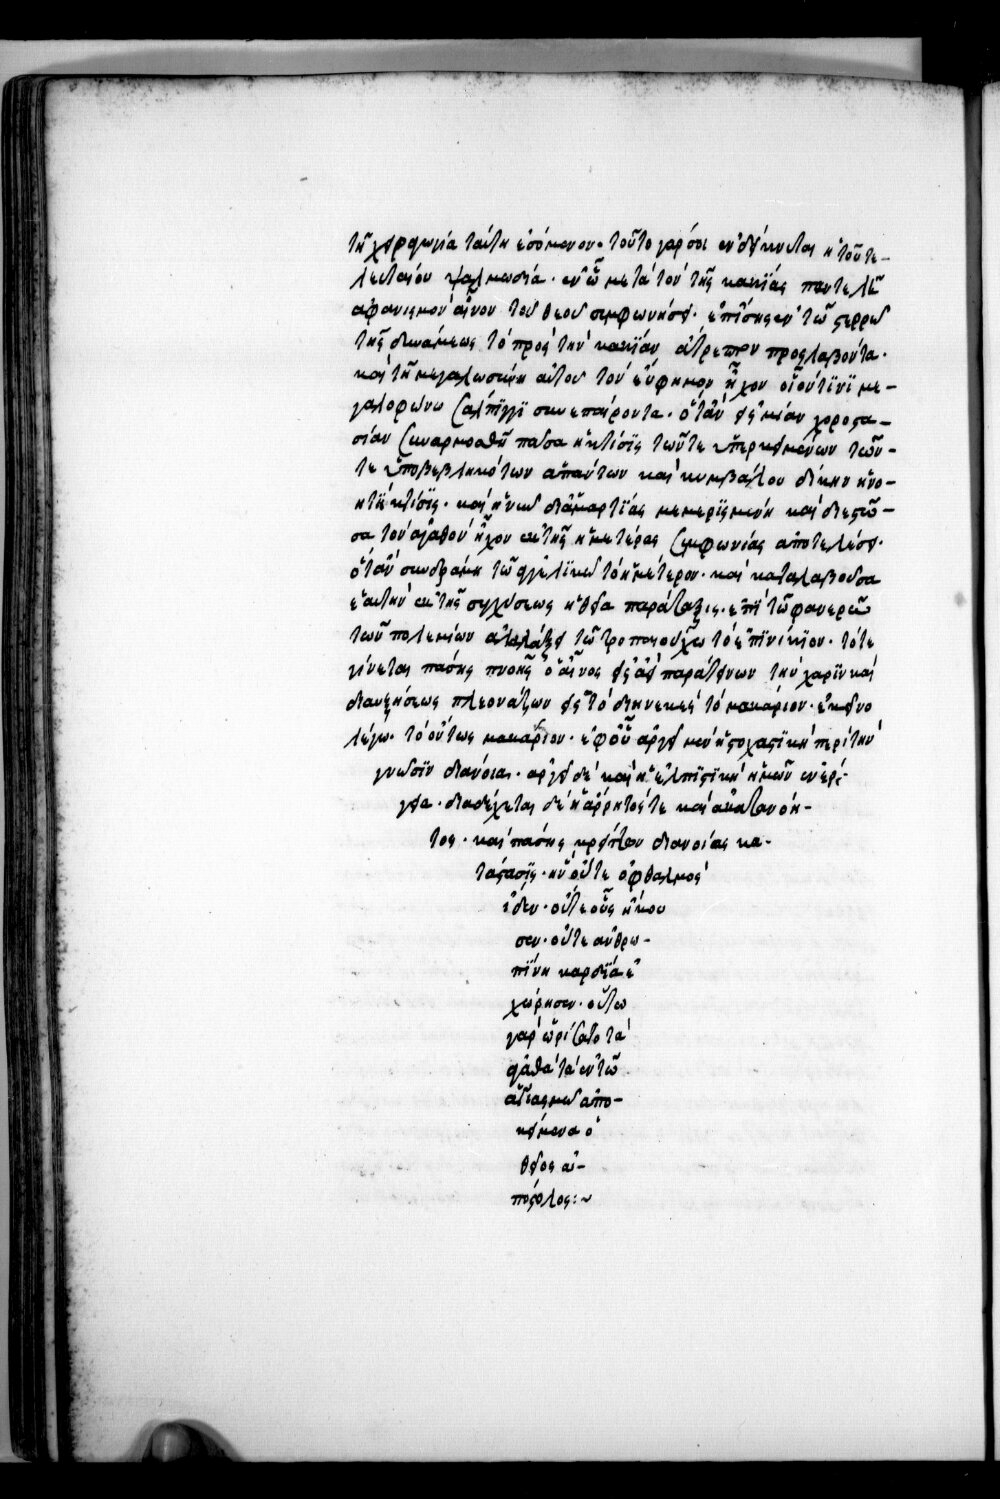 τῇ χειραγωγία ταύτη ἑπόμενον· τοῦτο γάρ σοι ἐνδείκνυται ἡ τοῦ τε-
λευταίου ψαλμωδία· ἐν ᾧ μετὰ τὸν τῆς κακίας παντελῆ
ἀφανισμὸν αἶνον τοῦ θεοῦ συμφωνήσει· ἐπίσης ἐν τῷ στερρῷ
τῆς δυνάμεως τὸ πρὸς τὴν κακίαν ἄτρεπτον προσλαβόντα·
καὶ τῇ μεγαλωσύνη αὐτοῦ τὸν εὔφημον ἦχον οἷόν τινι με-
γαλοφώνω σάλπιγγι συνεπαίροντα· ὅταν εἰς μίαν χοροστα-
σίαν συναρμοσθῇ πᾶσα ἡ κτίσις τῶν τε ὑπερκειμένων τῶν-
τε ὑποβεβληκότων ἁπάντων καὶ κυμβάλου δίκην ἡ νο-
ητὴ κτίσις· καὶ ἡ νῦν διὰ ἁμαρτίας μεμερισμένη καὶ διεστῶ-
σα τὸν ἀγαθὸν ἦχον ἐκ τῆς ἡμετέρας συμφωνίας ἀποτελέσει·
ὅταν συνδράμη τῷ ἀγγελικῷ τὸ ἡμέτερον· καὶ καταλαβοῦσα
ἑαυτὴν ἐκ τῆς συγχύσεως ἡ θεία παράταξις· ἐπὶ τῷ φανερῷ
τῶν πολεμίων ἀλαλάξει τῷ τροπαιούχῳ τὸ ἐπινίκιον· τότε
γίνεται πάσης πνοῆς ὁ αἶνος εἰς ἀεὶ παρατείνων τὴν χάριν καὶ
διαυξήσεως πλεονάζων εἰς τὸ διηνεκὲς τὸ μακάριον· ἐκεῖνο
λέγω· τὸ ὄντως μακάριον· ἐφ' οὗ ἀργεῖ μὲν ἡ στοχαστικὴ περὶ τὴν
γνῶσιν διάνοια· ἀργεῖ δὲ καὶ ἡ ἐλπιστικὴ ἡμῶν ἐνέρ-
γεια· διαδέχεται δὲ ἡ ἄρρητός τε καὶ ἀκατανόη-
τος· καὶ πάσης κρείττων διανοίας κα-
τάστασις· ἣν οὔτε ὀφθαλμὸς
εἶδεν· οὔτε οὖς ἤκου
σεν· οὔτε ἀνθρω-
πίνη καρδία ἐ
χώρησεν· οὕτω
γὰρ ὡρίσατο τὰ
ἀγαθὰ τὰ ἐν τῷ
ἁγιασμῷ ἀπο-
κείμενα ὁ
θεῖος ἀ-
πόστολος:~